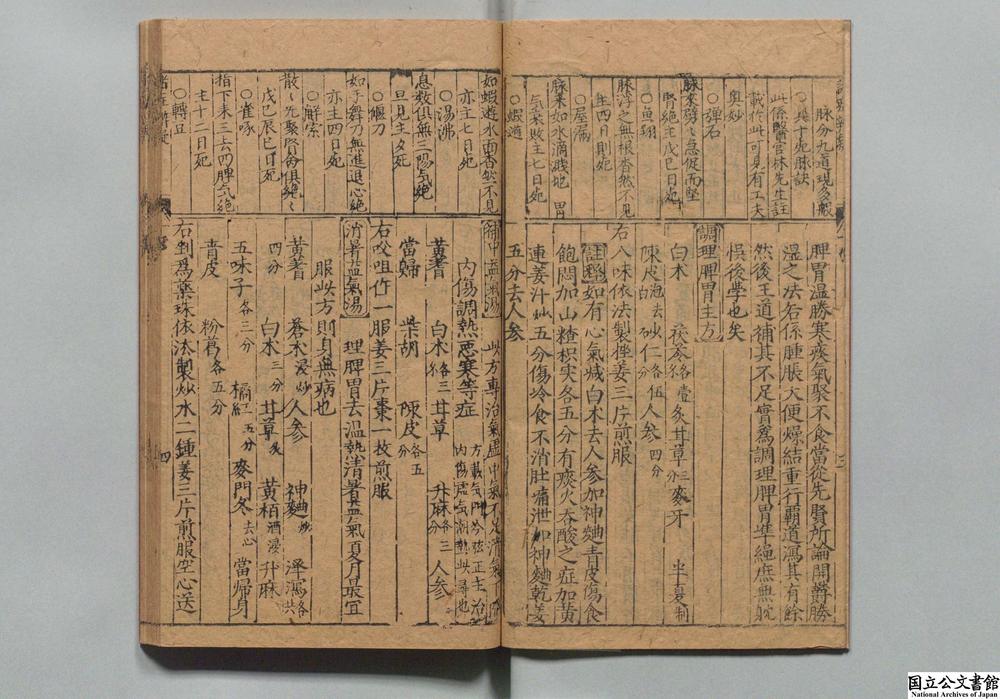 脉分九道現多般
○具十死脉訣
此係醫官林先生註
載於此可見有工夫
奥妙
○彈石
脉来劈〻急促而堅
腎絶主戊巳日死
○魚翔
脉浮之無根杳然不見
主四日則死
○屋漏
脉来如水滴濺地　胃
氣衰敗主七日死
○蝦遊
脾胃温勝寒痰氣聚不食當從先賢所論開欝勝
湿之法右係腫脹大便燥結重行覇道瀉其有餘
然後王道補其不足實爲調理脾胃準䋲庶無躭
悞後學也矣
調理脾胃主方
白木　茯苓　炙甘草　麥牙　半夏制
陳皮泡去白　砂仁各伍分　人參四分
右八味依法製挫姜三片煎服
註釋如有心氣減白木去人參加神麯青皮傷食
飽悶加山楂枳実各五分有痰火吞酸之症加黄
連姜汁炒五分傷冷食不消肚痛泄加神麯乾姜
五分去人參
如蝦遊水面杳然不見
亦主七日死
○湯沸
息数俱無三陽氣絶
旦見主夕死
○偃刀
如手舞刀無進退心絶
亦主四日死
○解索
散〻先聚腎命俱絶〻
戊巳辰巳日死
○雀啄
指下来三去四脾氣絶
主十二日死
○轉豆
補中益氣湯　此方專治氣虚中氣不足清氣
内傷調熱悪寒等症
黄耆　白木各三分　甘草　升麻各三分　人參
當歸　柴胡　陳皮各五分
右㕮咀作一服姜三片棗一枚煎服
消暑益氣湯　理脾胃去温熱清暑益氣夏月最宜
服此方則身無病也
黄耆四分　蒼木浸炒　人參　神麯炒　澤瀉各
白木三分　甘草炙　黄栢酒浸　升麻
五味子各三分　橘紅五分　麥門冬去心　當帰身
青皮　粉葛各五分
右剉爲藥珠依法製炒水二鍾姜三片煎服空心送
四
国立公文書館
National Archives of Japan